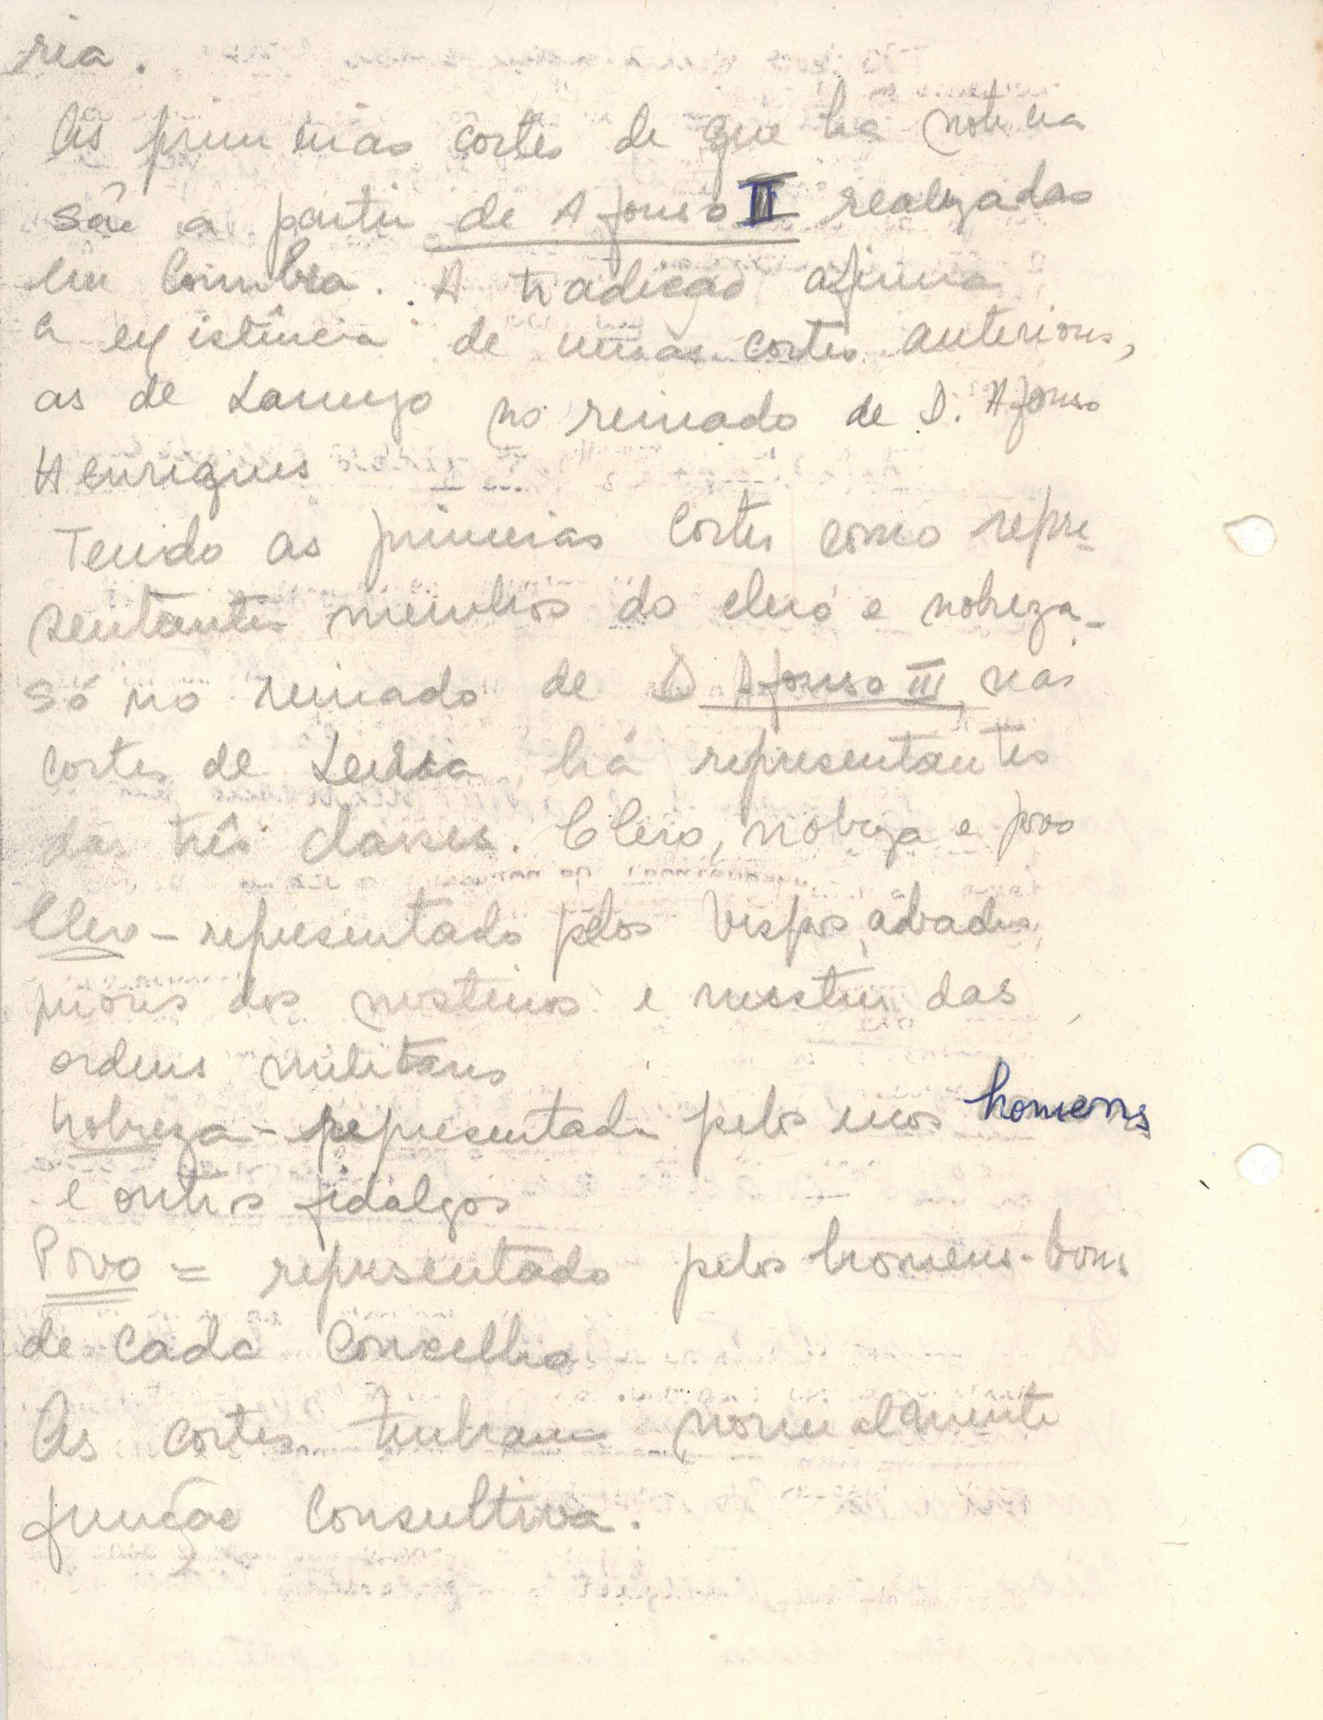 ria.
As primeiras cortes de que há noticia
são a partir de Afonso II realizadas
em Coimbra. A tradição afirma
a existência de umas cortes anteriores,
as de Lamego no reinado de D. Afonso
Henriques
Tendo as primeiras Cortes como repre-
sentantes membros do clero e nobreza-
só no reinado de D Afonso III, nas
cortes de Leiria há representantes
das três classes. Clero, nobreza e povo
Clero - representado pelos bispos, abades,
priores dos mosteiros e mestres das
ordens militares
Nobreza - representada pelos ricos homens
e outros fidalgos
Povo = representado pelos homens-bons
de cada Concelho
As cortes tinham normalmente
função Consultiva.